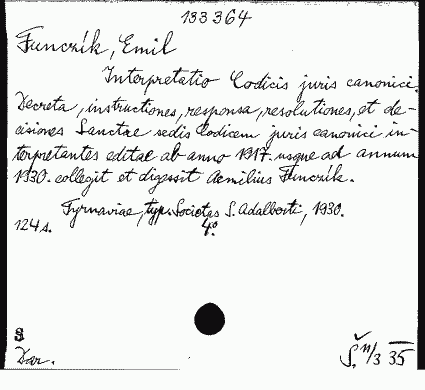 133364
Funczík, Emil
Interpretatio Codicis juris canonici.
Decreta, instructiones, responsa, resolutiones, et de-
cisiones Sanctae sedis Codicem juris canonici in-
terpretantes editae ab anno 1917. usque ad annum
1930. collegit et digessit Aemilius Funczík.
Tyrnaviae, typ. Societas S. Adalberti, 1930.
124 s. 4°
S
Dar.
Š. 11/3 35